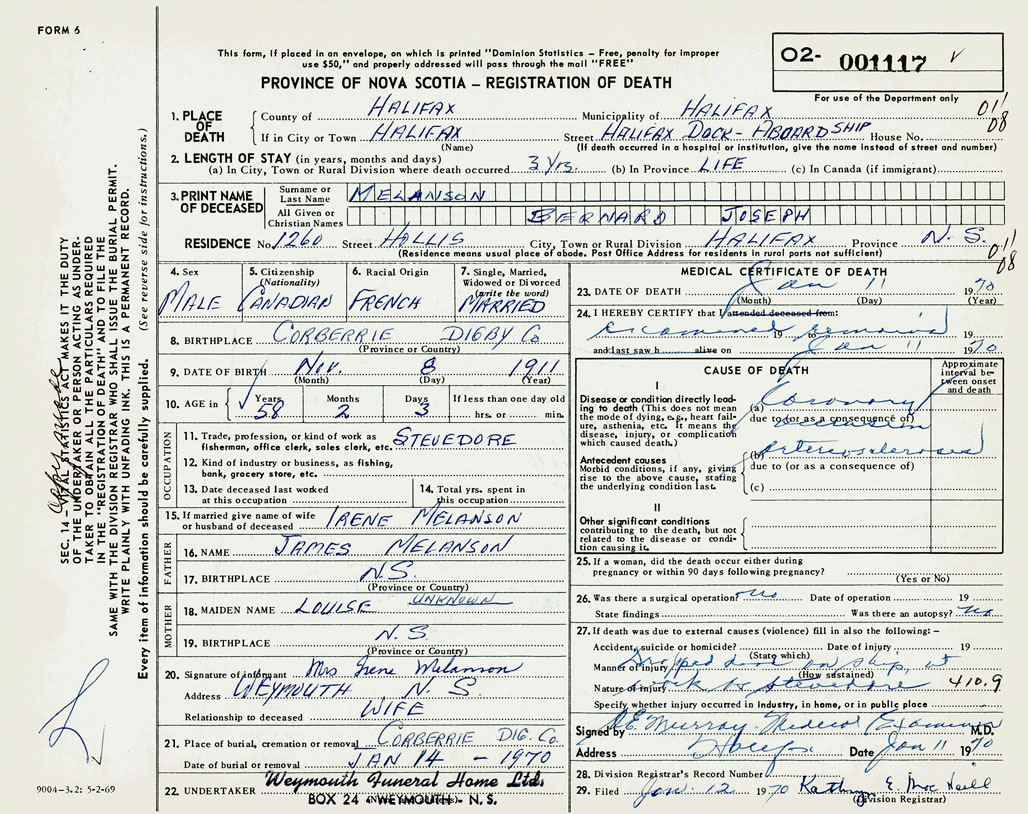 FORM 6
This form, if placed in an envelope, on which is printed "Dominion Statistics – Free, penalty for improper
use $50," and properly addressed will pass through the mail "FREE"
PROVINCE OF NOVA SCOTIA – REGISTRATION OF DEATH
O2- 001117 √
For use of the Department only
011
08
1. PLACE OF DEATH
County of HALIFAX Municipality of HALIFAX
If in City or Town HALIFAX Street HALIFAX DOCK - ABOARD SHIP House No.
(Name) (If death occurred in a hospital or institution, give the name instead of street and number)
2. LENGTH OF STAY (in years, months and days)
(a) In City, Town or Rural Division where death occurred 3 yrs. (b) In Province LIFE (c) In Canada (if immigrant)
3. PRINT NAME OF DECEASED
Surname or Last Name MELANSON
All Given or Christian Names BERNARD JOSEPH
RESIDENCE No. 1260 Street HOLLIS City, Town or Rural Division HALIFAX Province N.S.
(Residence means usual place of abode. Post Office Address for residents in rural parts not sufficient)
011
08
4. Sex MALE
5. Citizenship (Nationality) CANADIAN
6. Racial Origin FRENCH
7. Single, Married, Widowed or Divorced (write the word) MARRIED
8. BIRTHPLACE CORBERRIE DIGBY Co
(Province or Country)
9. DATE OF BIRTH Nov. 8 1911
(Month) (Day) (Year)
10. AGE in √ Years 58 Months 2 Days 3 If less than one day old hrs. or min.
OCCUPATION
11. Trade, profession, or kind of work as fisherman, office clerk, sales clerk, etc. STEVEDORE
12. Kind of industry or business, as fishing, bank, grocery store, etc.
13. Date deceased last worked at this occupation
14. Total yrs. spent in this occupation
15. If married give name of wife or husband of deceased IRENE MELANSON
FATHER
16. NAME JAMES MELANSON
17. BIRTHPLACE N.S.
(Province or Country)
MOTHER
18. MAIDEN NAME LOUISE UNKNOWN
19. BIRTHPLACE N.S.
(Province or Country)
20. Signature of informant Mrs Irene Melanson
Address WEYMOUTH N.S.
Relationship to deceased WIFE
21. Place of burial, cremation or removal CORBERRIE DIG. Co.
Date of burial or removal JAN 14 - 1970
22. UNDERTAKER Weymouth Funeral Home Ltd.
BOX 24 - WEYMOUTH - N. S.
MEDICAL CERTIFICATE OF DEATH
23. DATE OF DEATH Jan 11 1970
(Month) (Day) (Year)
24. I HEREBY CERTIFY that I attended deceased from:
Examined 19 to remains 19
and last saw h alive on Jan 11 1970
CAUSE OF DEATH
Approximate interval between onset and death
I
Disease or condition directly leading to death (This does not mean the mode of dying, e.g., heart failure, asthenia, etc. It means the disease, injury, or complication which caused death.)
(a) Coronary
due to (or as a consequence of)
Antecedent causes
Morbid conditions, if any, giving rise to the above cause, stating the underlying condition last.
(b) Arteriosclerosis
due to (or as a consequence of)
(c)
II
Other significant conditions contributing to the death, but not related to the disease or condition causing it.
25. If a woman, did the death occur either during
pregnancy or within 90 days following pregnancy?
(Yes or No)
26. Was there a surgical operation? No Date of operation 19
State findings Was there an autopsy? No
27. If death was due to external causes (violence) fill in also the following: –
Accident, suicide or homicide? Date of injury 19
(State which)
Manner of injury Dropped dead on ship, at
(How sustained)
Nature of injury work as stevedore 410.9
Specify whether injury occurred in industry, in home, or in public place
Signed by Murray Medical Examiner M.D.
Address Halifax Date Jan 11 1970
28. Division Registrar's Record Number
29. Filed Jan. 12 1970 Kathryn E. MacNeill
(Division Registrar)
SEC. 14 – VITAL STATISTICS ACT MAKES IT THE DUTY
OF THE UNDERTAKER OR PERSON ACTING AS UNDER-
TAKER TO OBTAIN ALL THE PARTICULARS REQUIRED
IN THE "REGISTRATION OF DEATH" AND TO FILE THE
SAME WITH THE DIVISION REGISTRAR WHO SHALL ISSUE THE BURIAL PERMIT.
WRITE PLAINLY WITH UNFADING INK. THIS IS A PERMANENT RECORD.
Every item of information should be carefully supplied. (See reverse side for instructions.)
9004-3.2: 5-2-69